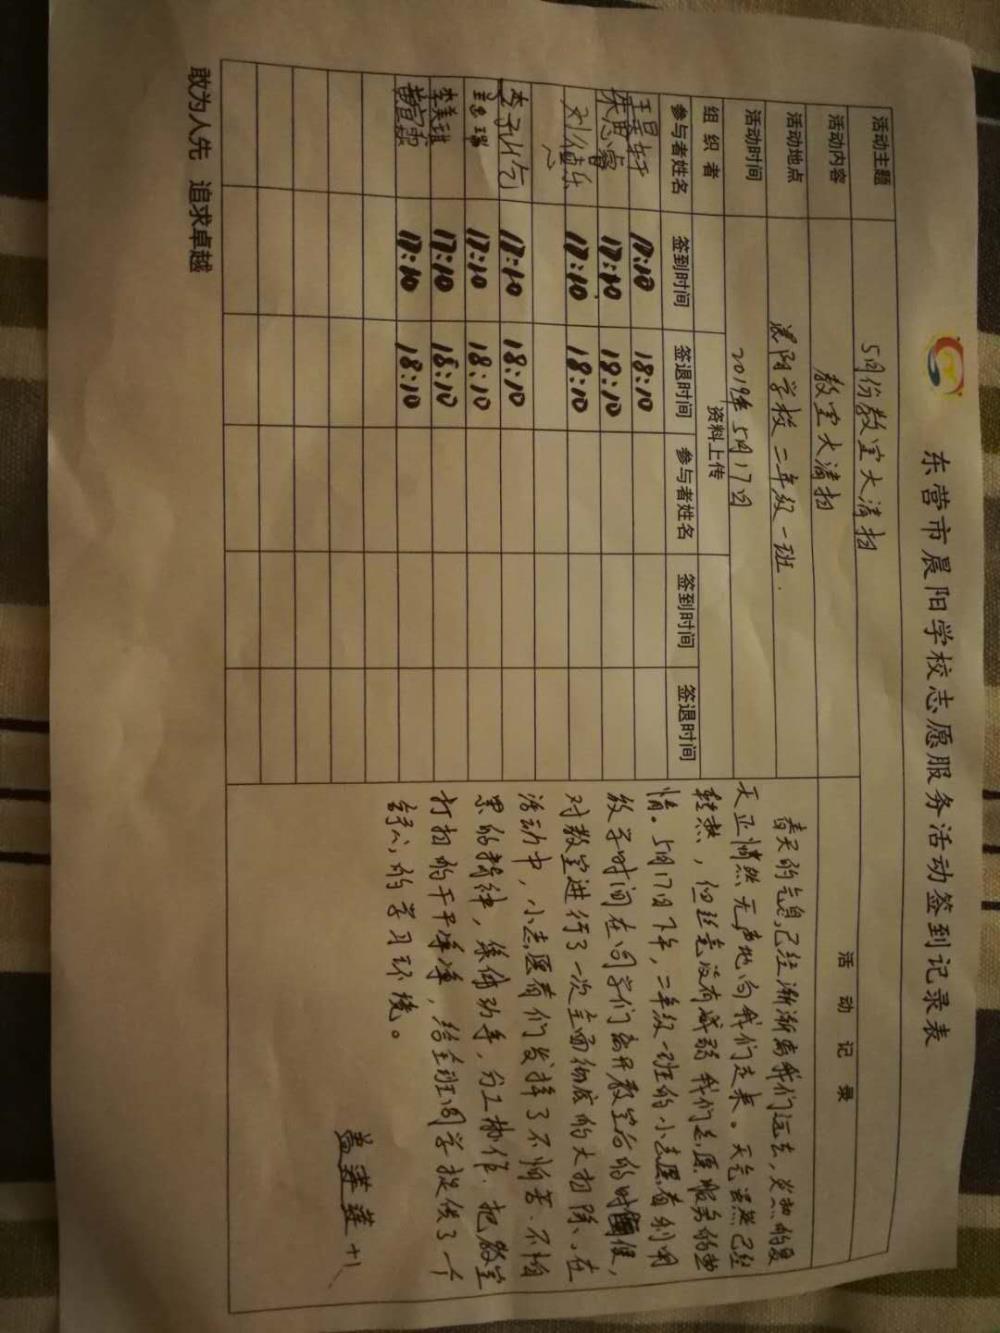 东营市晨阳学校志愿服务活动签到记录表
活动主题 5月份教室大清扫 活动记录
活动内容 教室大清扫
活动地点 晨阳学校二年级一班.
活动时间 2019年5月17日
组织者 资料上传
参与者姓名 签到时间 签退时间 参与者姓名 签到时间 签退时间
17:10 18:10
17:10 18:10
17:10 18:10
17:10 18:10
17:10 18:10
17:10 18:10
17:10 18:10
春天的气息已经渐渐离我们远去,炎热的夏
天正悄然无声地向我们走来。天气虽然已经
轻热,但丝毫没有减弱我们志愿服务的热
情。5月17日下午,二年级一班的小志愿者利用
放学时间在同学们离开教室后的时候,
对教室进行了一次全面彻底的大扫除,在
活动中,小志愿者们发挥了不怕苦、不怕
累的精神,集体动手,分工协作.把教室
打扫的干干净净,给全班同学提供了一个
舒心的学习环境。
敢为人先 追求卓越